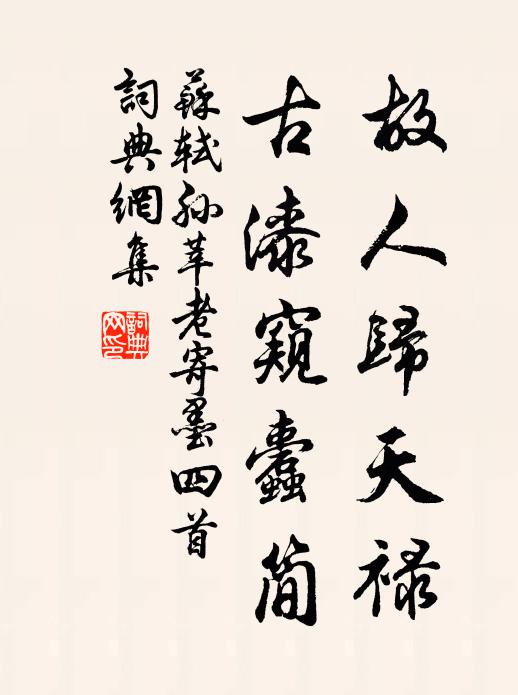 故人歸天禄
古漆窺蠹簡
蘇軾孫莘老寄墨四首
詞典網集
詞典網印